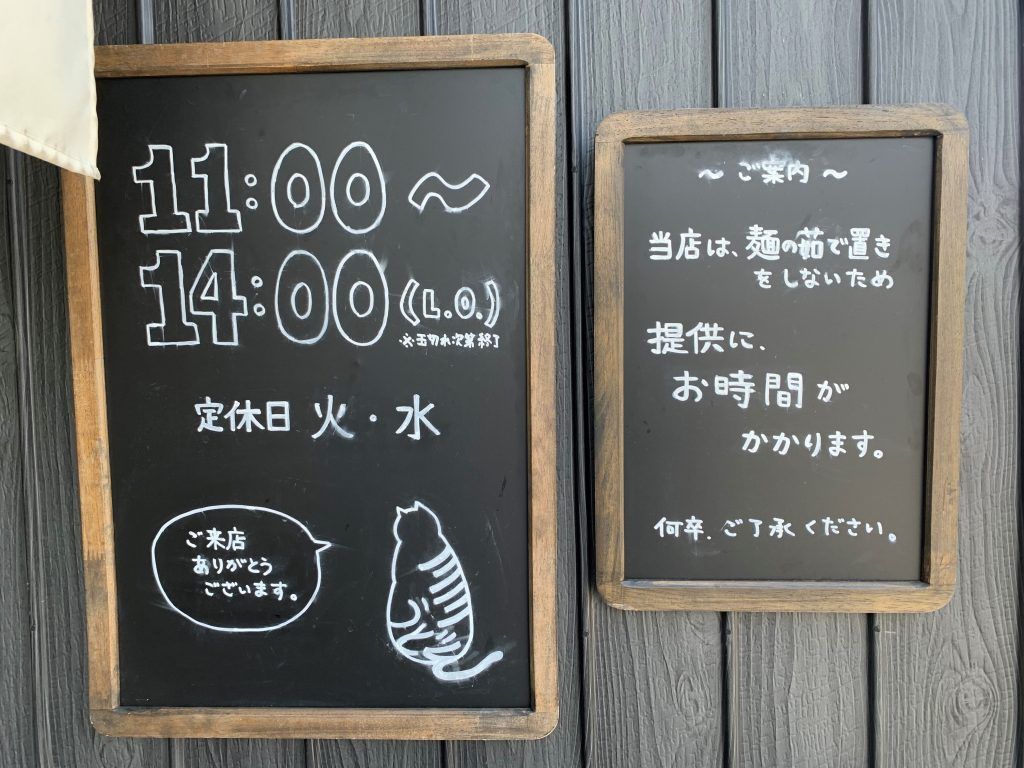 11:00～
14:00 (L.O.)
※玉切れ次第終了
定休日 火・水
ご来店
ありがとう
ございます。
～ ご案内 ～
当店は、麺の茹で置き
をしないため
提供に、
お時間が
かかります。
何卒、ご了承ください。